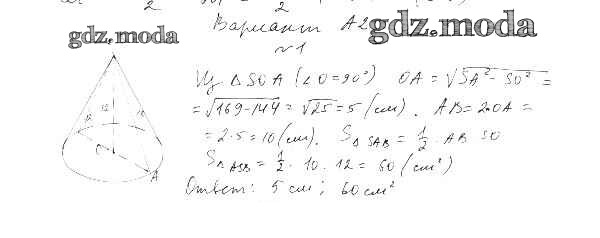 2 2
gdz.moda
Вариант А2
gdz.moda
№1
Из △SOA (∠O=90°) OA = √SA² - SO² =
= √169-144 = √25 = 5 (см). AB = 2·OA =
= 2·5 = 10 (см). S△SAB = 1/2 · AB · SO
S△ASB = 1/2 · 10 · 12 = 60 (см²)
Ответ: 5 см; 60 см²
12
A